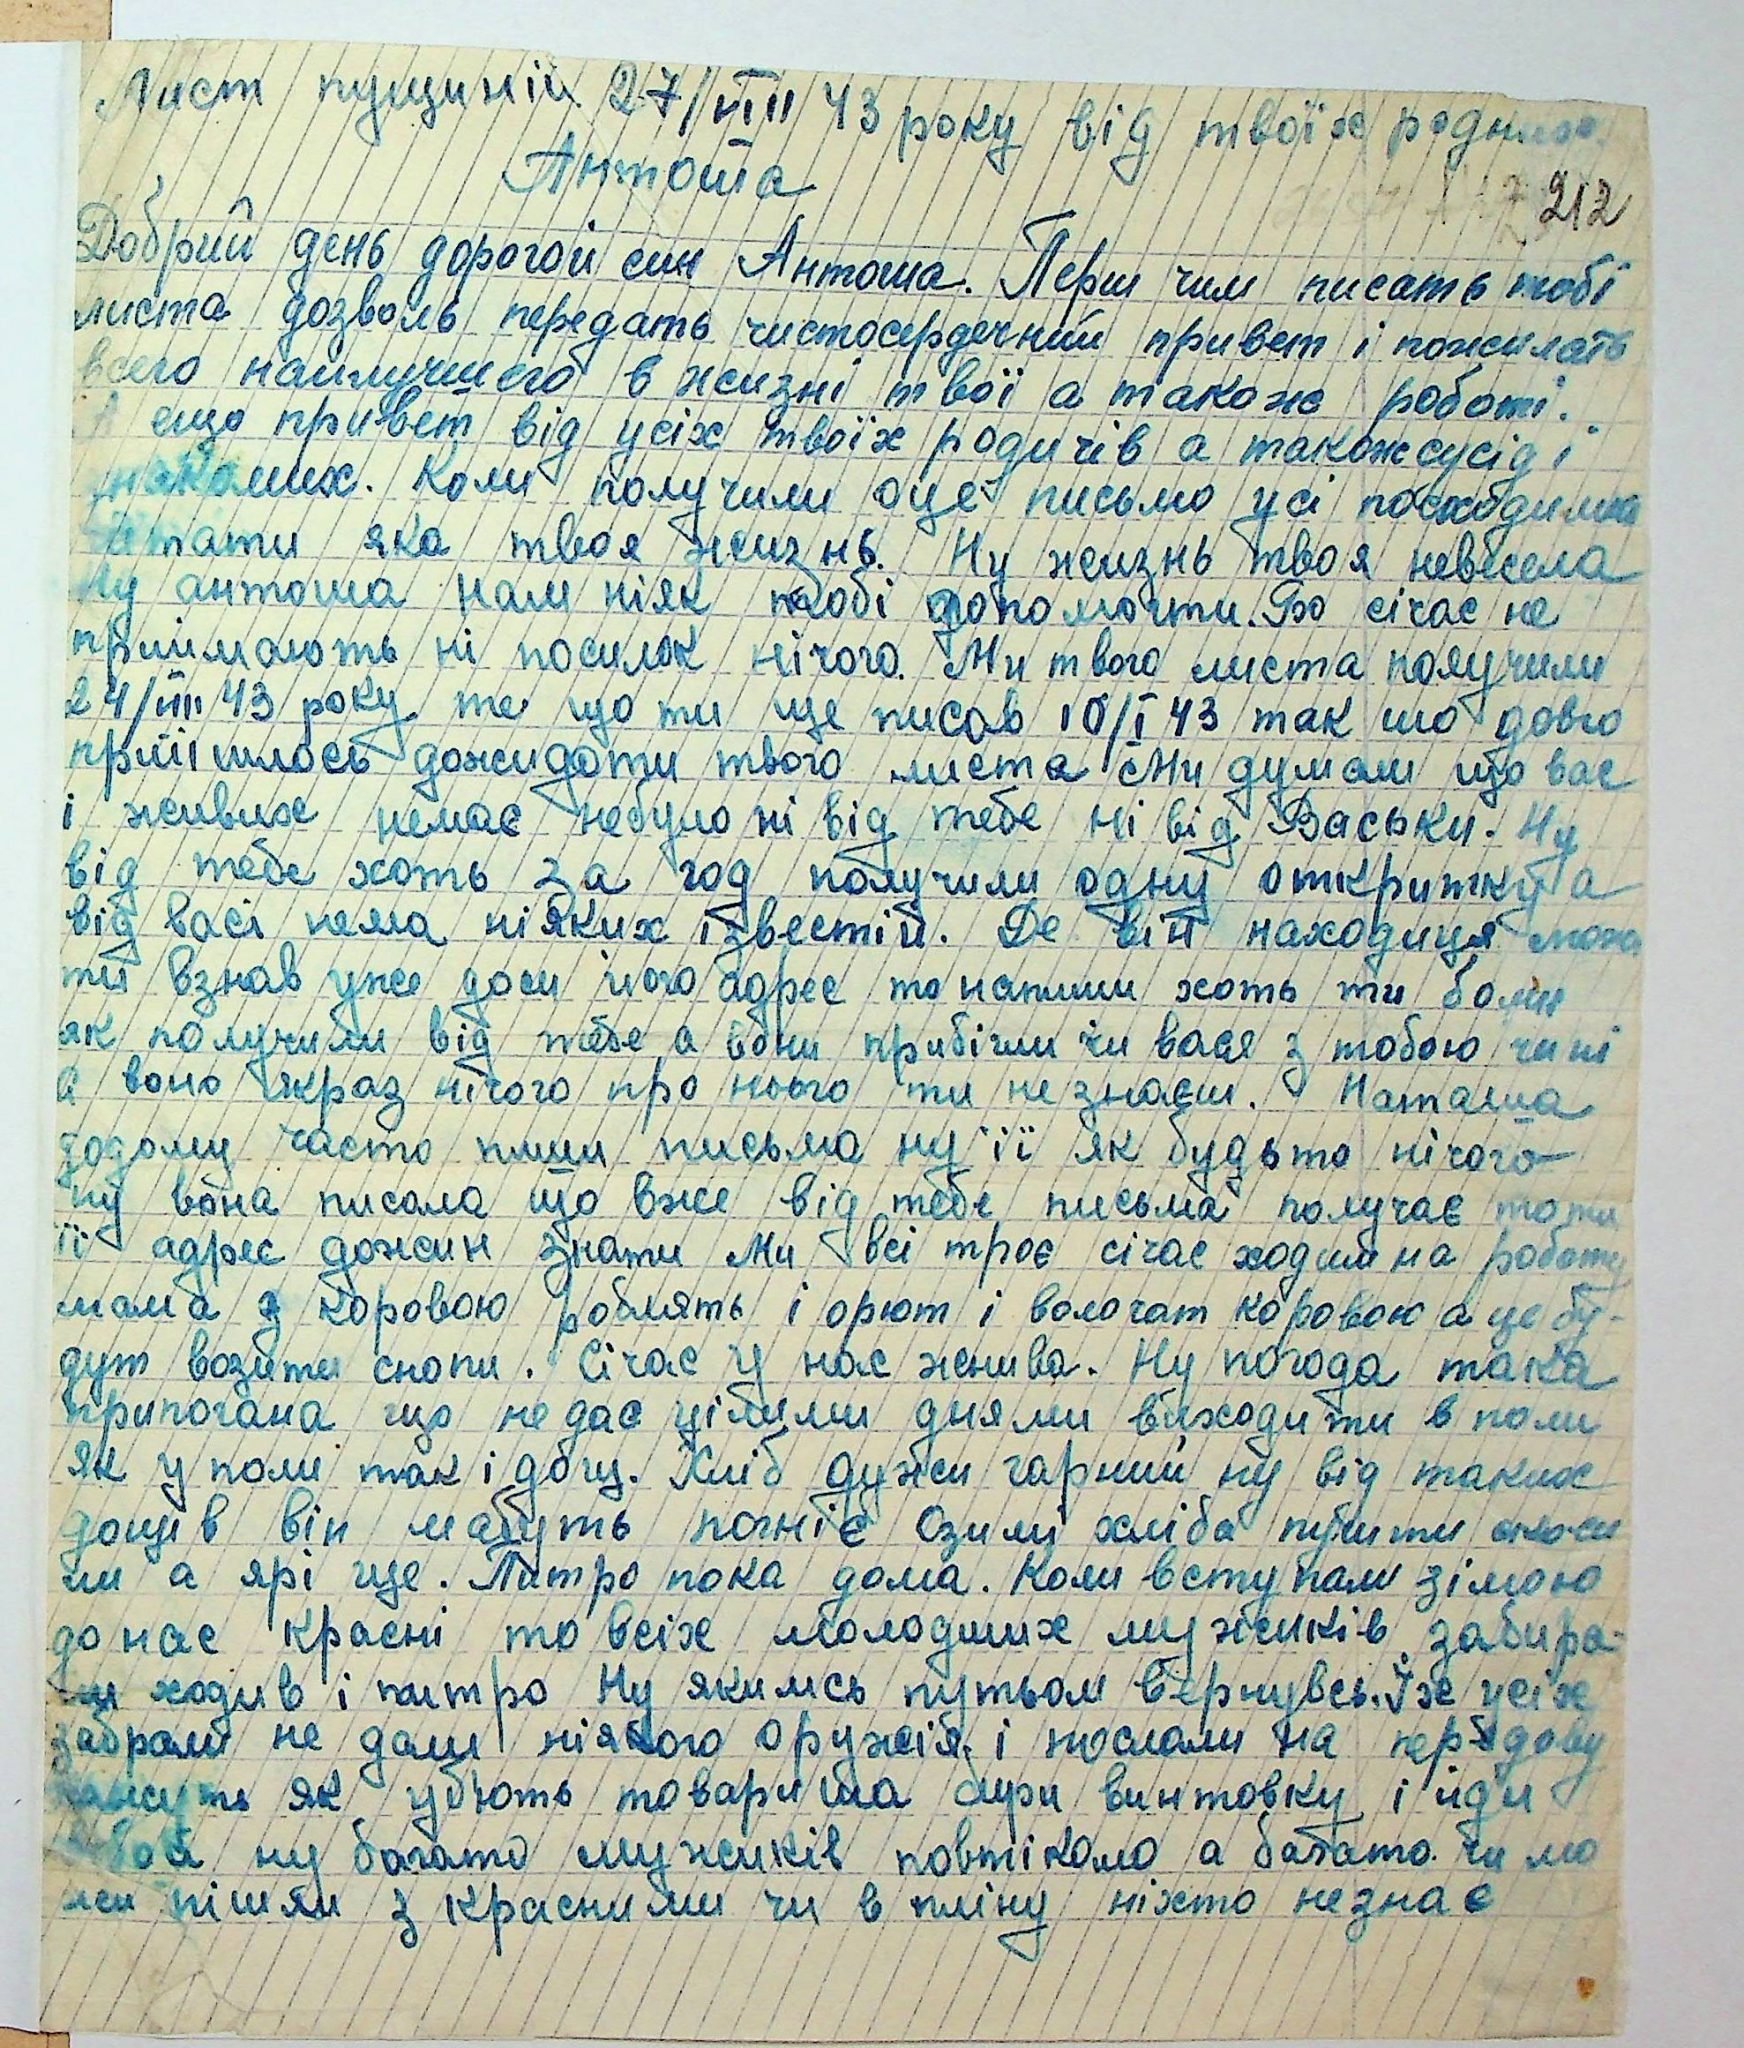 Лист пущиний 27/VIII 43 року від твоїх родних.
Антоша
212
Добрий день дорогой син Антоша. Перш чим писать тобі
листа дозволь передать чистосердечний привет і пожилать
всего наилучшего в жизні твої а також роботі.
А ещо привет від усіх твоїх родичів а також сусід і
знакомих. Коли получили оце письмо усі посходимся
читати яка твоя жизнь. Ну жизнь твоя невесела
Ну антоша нам ніяк тобі допомогти. Бо січас не
приймають ні посилок нічого. Ми твого листа получили
24/VIII 43 року те що ти ще писав 10/I 43 так шо довго
прийшлось дожидати твого листа Ми думали що вас
і живих немає небуло ні від тебе ні від Васьки. Ну
від тебе хоть за год получили одну открытку а
від васі нема ніяких ізвестій. Де він находиця може
ти взнав уже доси його адрес то напиши хоть ти
як получили від тебе а вони прибігли чи вася з тобою чи ні
а воно якраз нічого про нього ти не знаєш. Наташа
додому часто пиши письма ну її як будьто нічого
ну вона писала що вже від тебе письма получає то ти
її адрес дожин знати Ми всі троє січас ходим на роботу
мама з коровою роблять і орют і волочат коровою а це бу-
дут возити снопи. Січас у нас жнива. Ну погода така
припогана що не дає цілими днями виходити в поли
Як у поли так і дощ. Хліб дужи гарний ну від таких
дощів він мабуть погніє Озимі хліба
ли а ярі ще. Питро пока дома. Коли вступали зімою
до нас красні то всіх молодших мужиків забира-
ли ходив і питро Ну якимсь путьом вернувсь. Їх усіх
забрали не дали ніякого оружія і послали на передову
кажуть як убють товариша бири винтовку і йди
в бой ну багато мужиків повтікало а багато чи мо
жи пішли з красними чи в пліну ніхто незнає